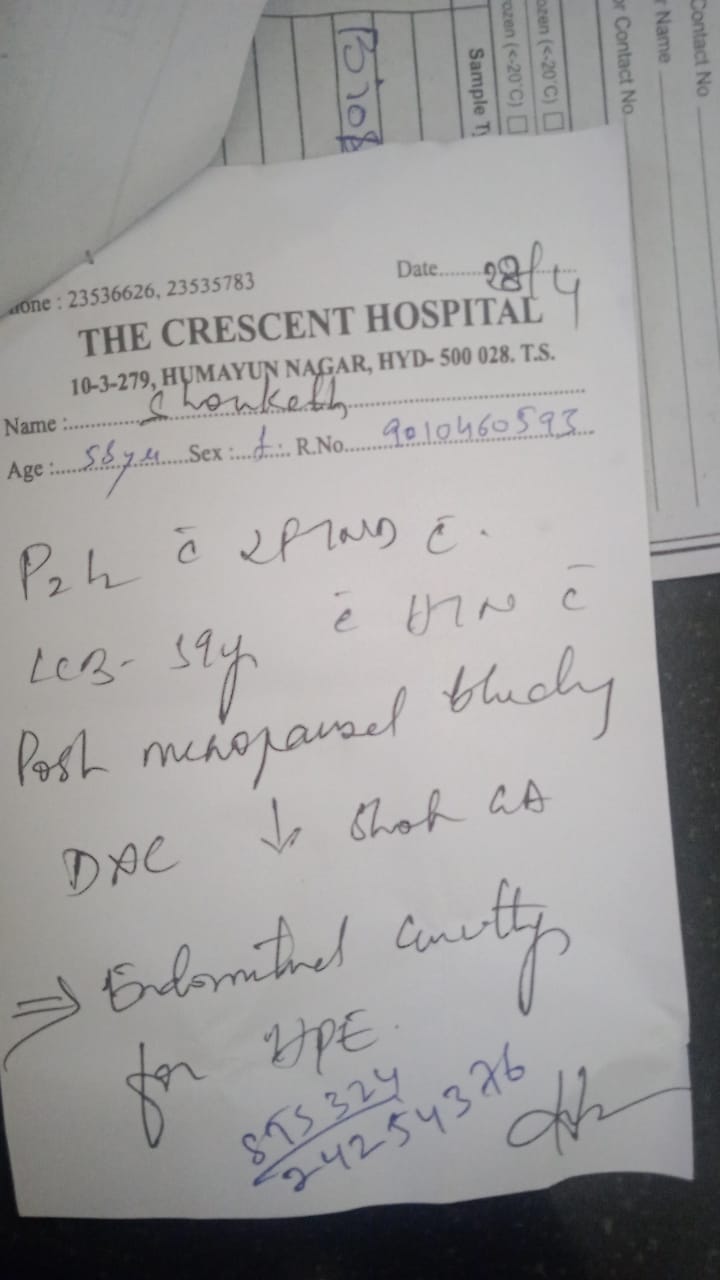 Contact No
r Name
or Contact No.
ozen (<-20°C)
ozen (<-20°C)
Sample Ty
hone : 23536626, 23535783
Date........28/4
THE CRESCENT HOSPITAL
10-3-279, HUMAYUN NAGAR, HYD- 500 028. T.S.
Name :
Age : Sex : f. R.No. 9010460593
P2L c̄ c̄.
LCB- 19y c̄ HTN c̄
Post menopausal bleeding
D&C ↓ Short GA
⇒ Endometrial
for HPE.
STS 324